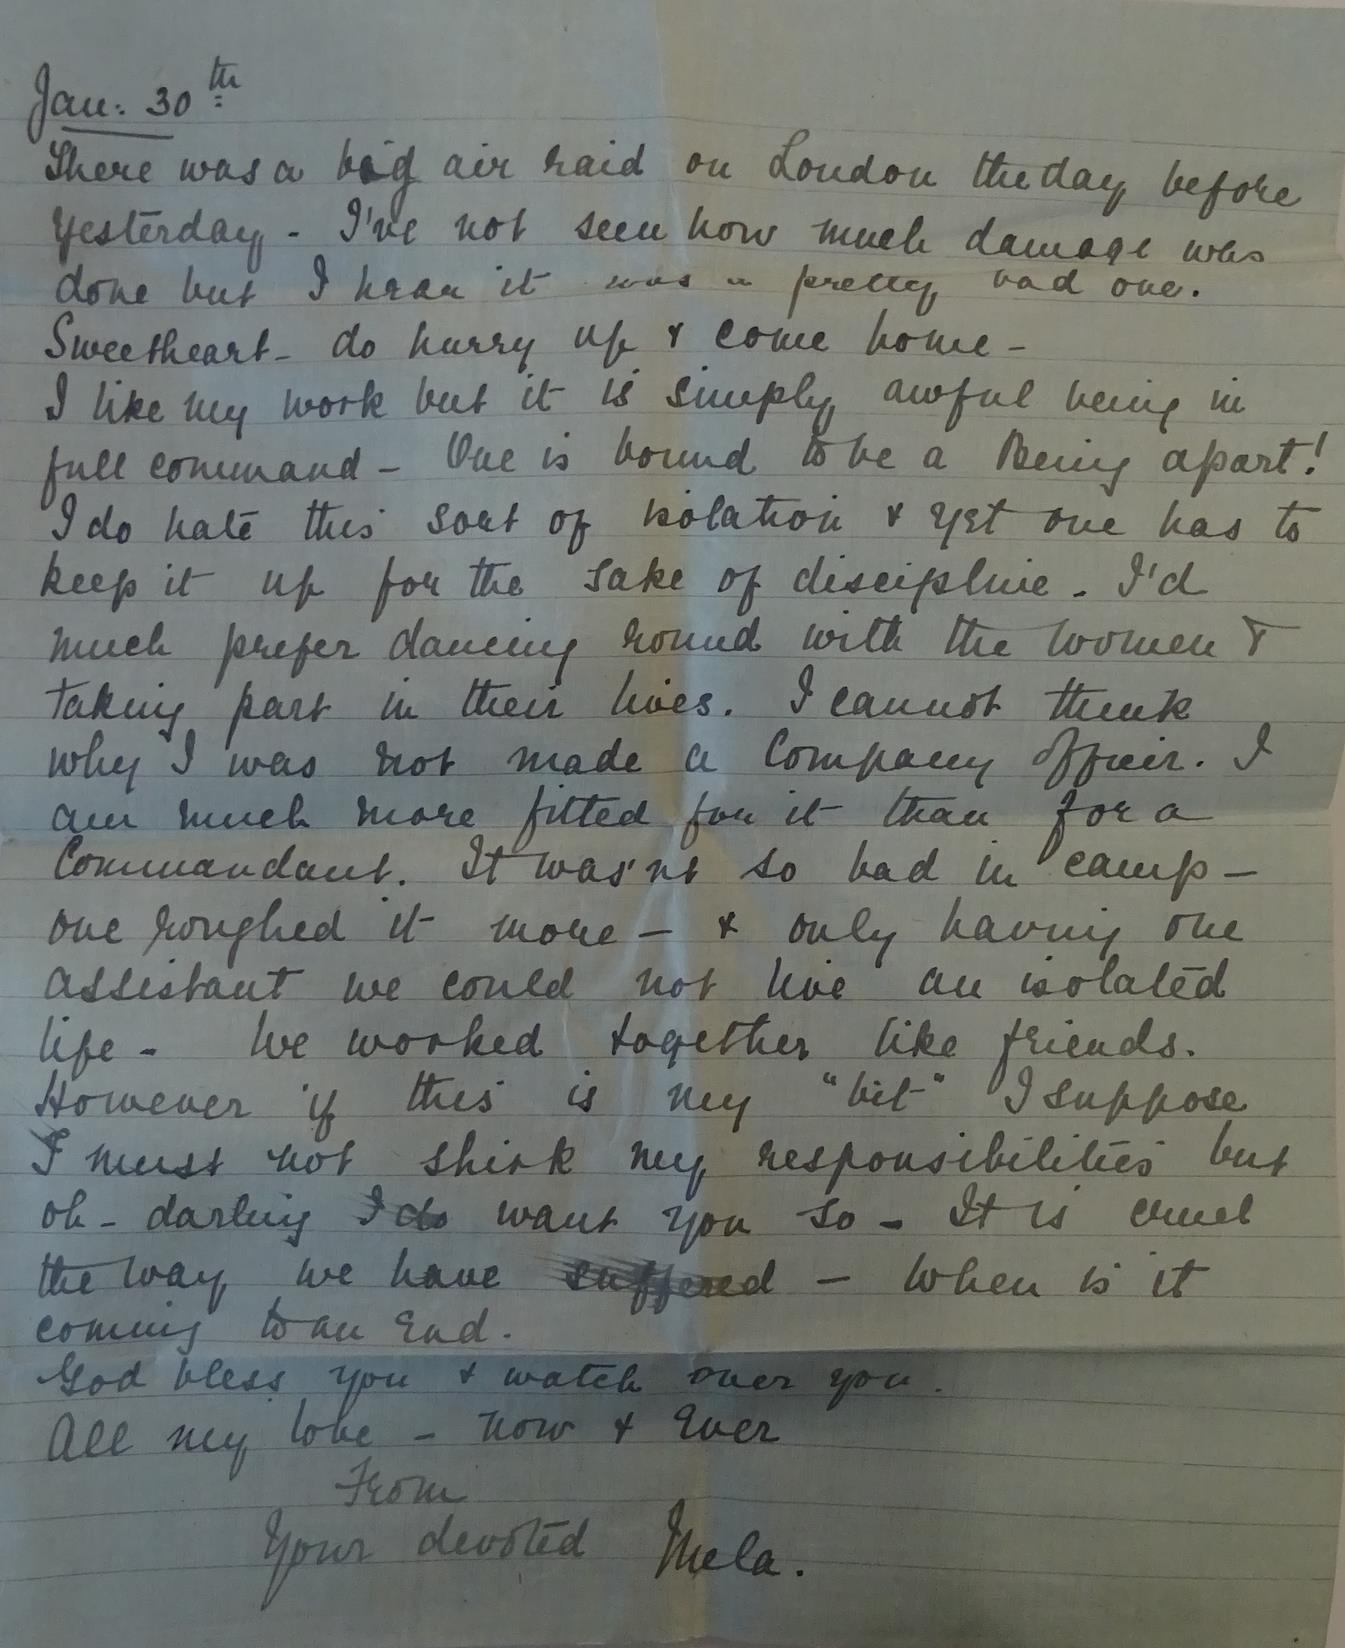 Jan: 30th
There was a big air raid on London the day before
yesterday - I've not seen how much damage was
done but I hear it was a pretty bad one.
Sweetheart - do hurry up & come home -
I like my work but it is simply awful being in
full command - One is bound to be a Being apart!
I do hate this sort of isolation & yet one has to
keep it up for the sake of discipline - I'd
much prefer dancing round with the women &
taking part in their lives. I cannot think
why I was not made a Company Officer. I
am much more fitted for it than for a
Commandant. It was'nt so bad in camp -
one roughed it more - & only having one
assistant we could not live an isolated
life - We worked together like friends.
However if this is my "bit" I suppose
I must not shirk my responsibilities but
oh - darling I do want you so - It is cruel
the way we have suffered - When is it
coming to an end.
God bless you & watch over you.
All my love - now & ever
From
Your devoted